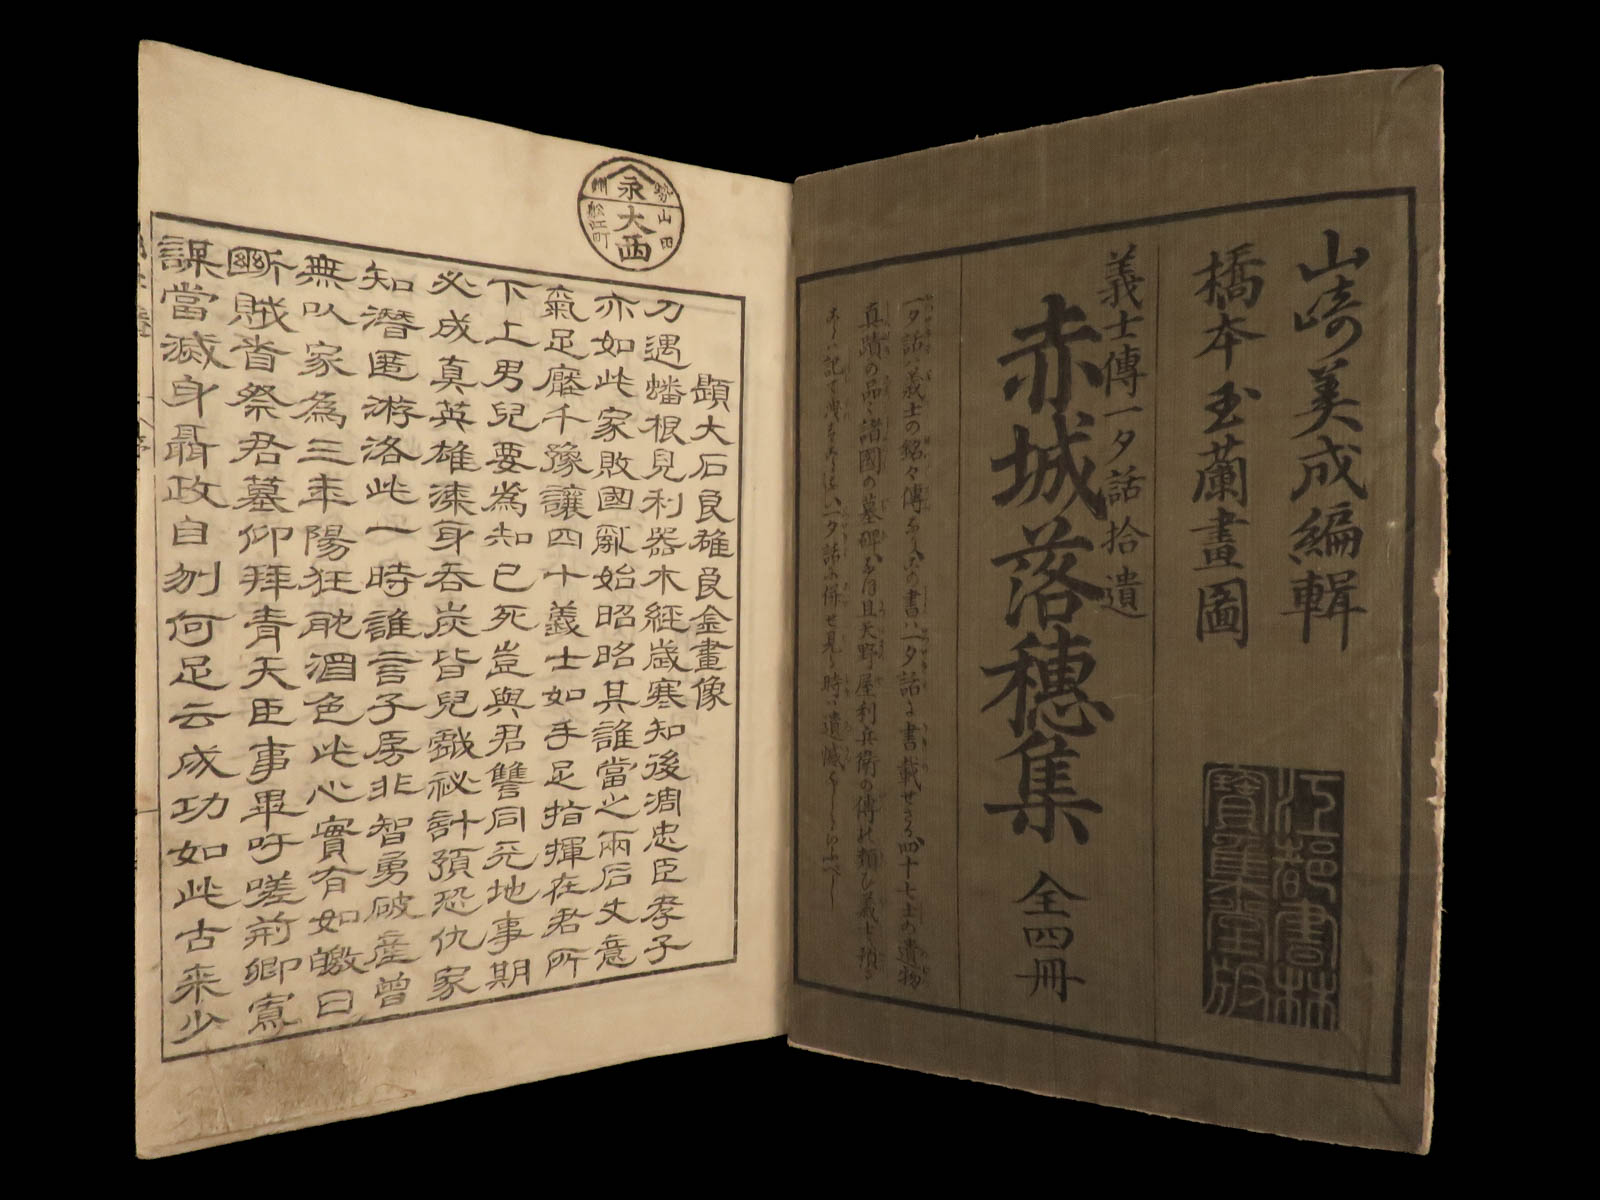 山崎美成編輯
橋本玉蘭畫圖
江都書林
寶集堂版
義士傳一夕話拾遺
赤城落穗集 全四冊
一夕話は義士の銘々傳なり此の書は一夕話に書載せざる四十七士の遺物
真蹟の品々諸國の墓碑および且天野屋利兵衛の傳の類ひ義士に預る
一夕話に併せ見る時は遺憾なしといふべし
勢州
山田
舩江町
永
大西
題大石良雄良金畫像
刀遇蟠根見利器木經歲寒知後凋忠臣孝子
亦如此家敗國亂始昭昭其誰當之兩石丈意
氣足壓千豫讓四十義士如手足指揮在君所
下上男兒要為知己死豈與君讐同天地事期
必成真英雄漆身吞炭皆兒戲祕計預恐仇家
知潛匿游洛此一時誰言子房非智勇破產曾
無以家為三年陽狂耽酒色此心實有如皦日
斷賊首祭君墓仰拜青天臣事畢吁嗟荊卿寡
謀當滅身聶政自刎何足云成功如此古来少